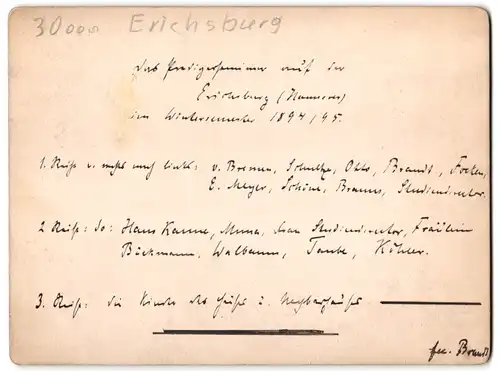 30000 Erichsburg
Das Predigerseminar auf der
Erichsburg (Hannover)
im Wintersemester 1894/95.
1. Reihe v. rechts nach links: v. Bremen, Schultze, Otto, Brandt, Focken,
E. Meyer, Schöne, Brauns, Studiendirector.
2 Reihe: do: Hans Kanne, Minna, Frau Studiendirector, Fräulein
Böckmann, Walbaum, Taube, Köhler.
3. Reihe: die Kinder des Hauses u. Nachbarhauses
fec. Brandt